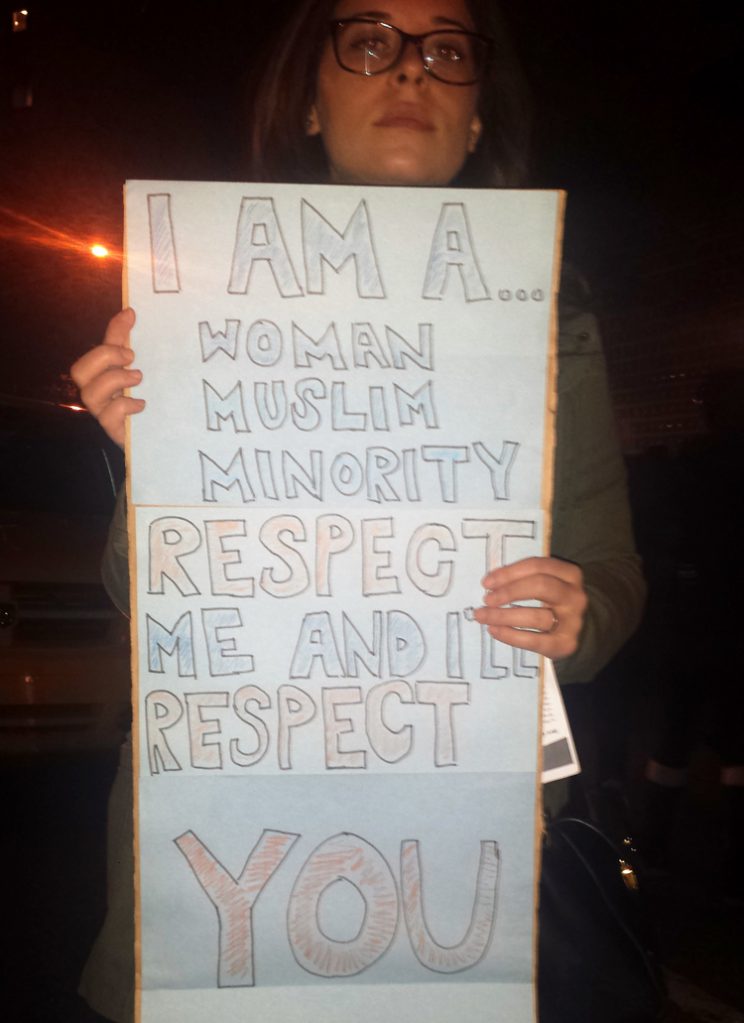 I AM A...
WOMAN
MUSLIM
MINORITY
RESPECT
ME AND I'LL
RESPECT
YOU